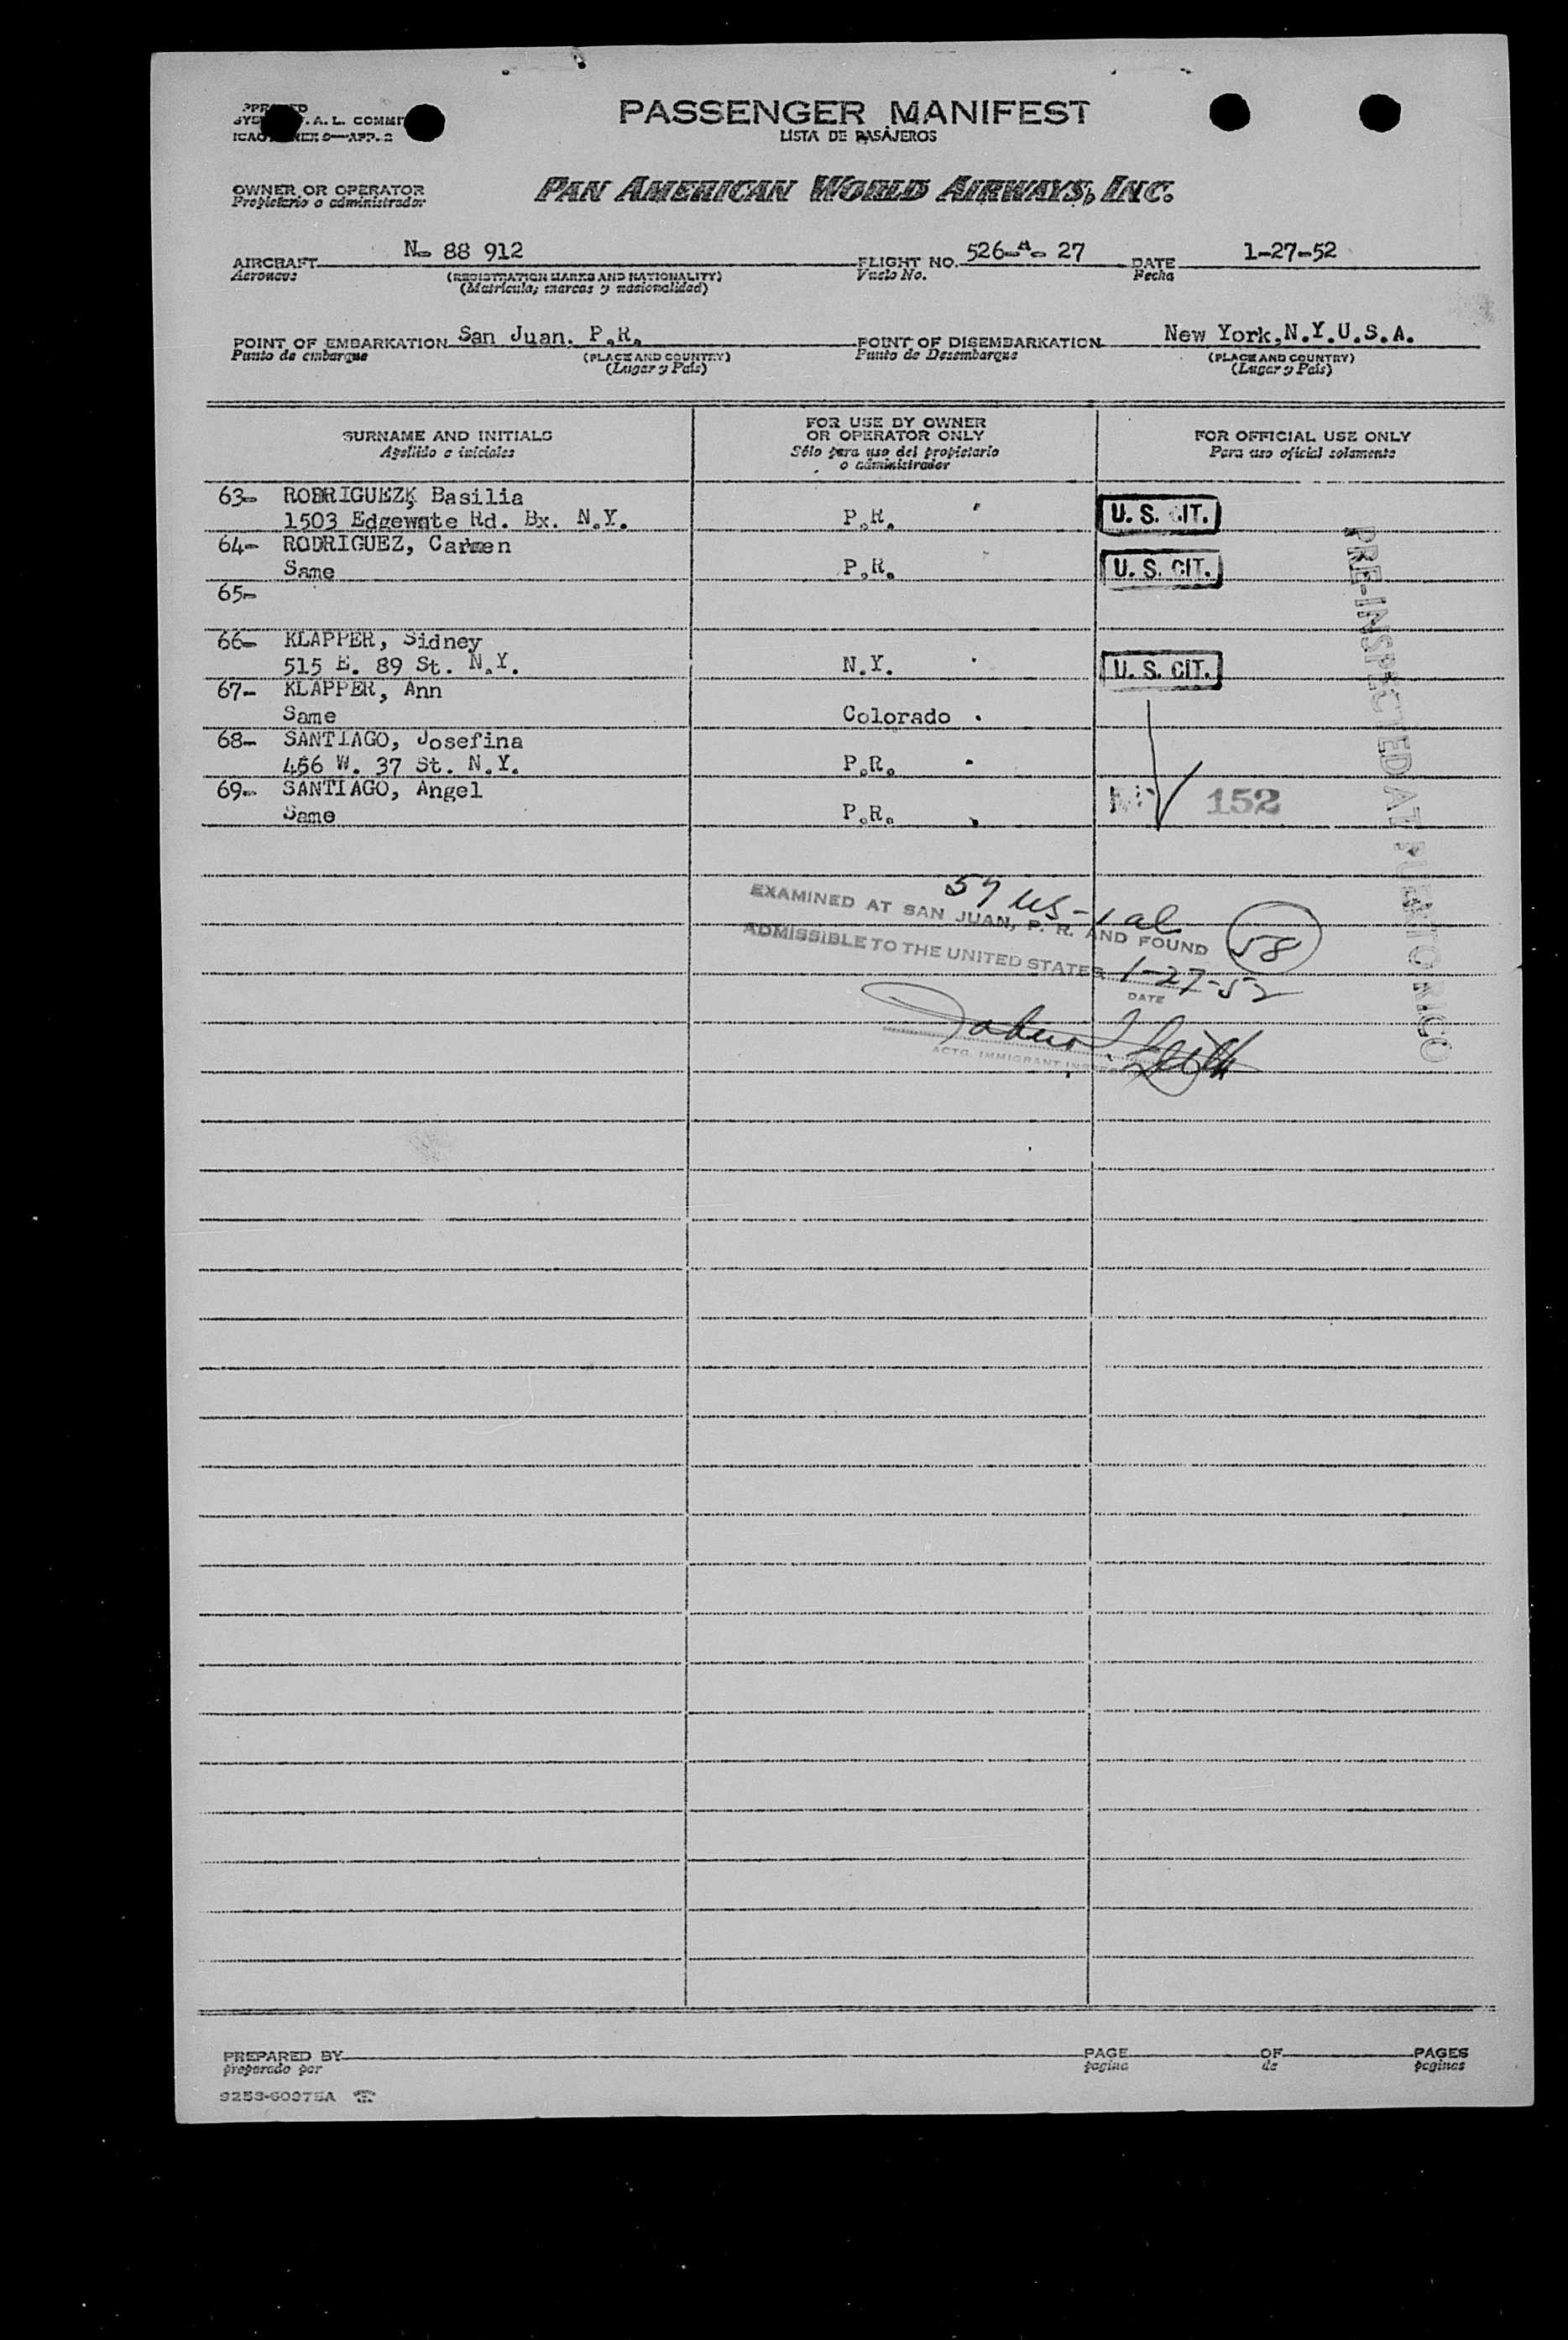 PASSENGER MANIFEST
LISTA DE PASAJEROS
ICAO
OWNER OR OPERATOR
Propietario o administrador
PAN AMERICAN WORLD AIRWAYS, INC.
AIRCRAFT N- 88 912 FLIGHT NO. 526-A- 27 DATE 1-27-52
Aeronave (REGISTRATION MARKS AND NATIONALITY) Vuelo No. Fecha
(Matrícula, marcas y nacionalidad)
POINT OF EMBARKATION San Juan. P.R. POINT OF DISEMBARKATION New York,N.Y.U.S.A.
Punto de embarque (PLACE AND COUNTRY) Punto de Desembarque (PLACE AND COUNTRY)
(Lugar y País) (Lugar y País)
SURNAME AND INITIALS
Apellido e iniciales
FOR USE BY OWNER
OR OPERATOR ONLY
Sólo para uso del propietario
o administrador
FOR OFFICIAL USE ONLY
Para uso oficial solamente
63- RODRIGUEZ, Basilia
1503 Edgewate Rd. Bx. N.Y. P.R. U. S. CIT.
64- RODRIGUEZ, Carmen
Same P.R. U. S. CIT.
65-
66- KLAPPER, Sidney
515 E. 89 St. N.Y. N.Y. U. S. CIT.
67- KLAPPER, Ann
Same Colorado
68- SANTIAGO, Josefina
456 W. 37 St. N.Y. P.R.
69- SANTIAGO, Angel 152
Same P.R.
PRE-INSPECTED AT PUERTO RICO
57 US - 1 al
EXAMINED AT SAN JUAN, P. R. AND FOUND 58
ADMISSIBLE TO THE UNITED STATES 1-27-52
DATE
ACTG. IMMIGRANT
PREPARED BY PAGE OF PAGES
preparado por pagina de paginas